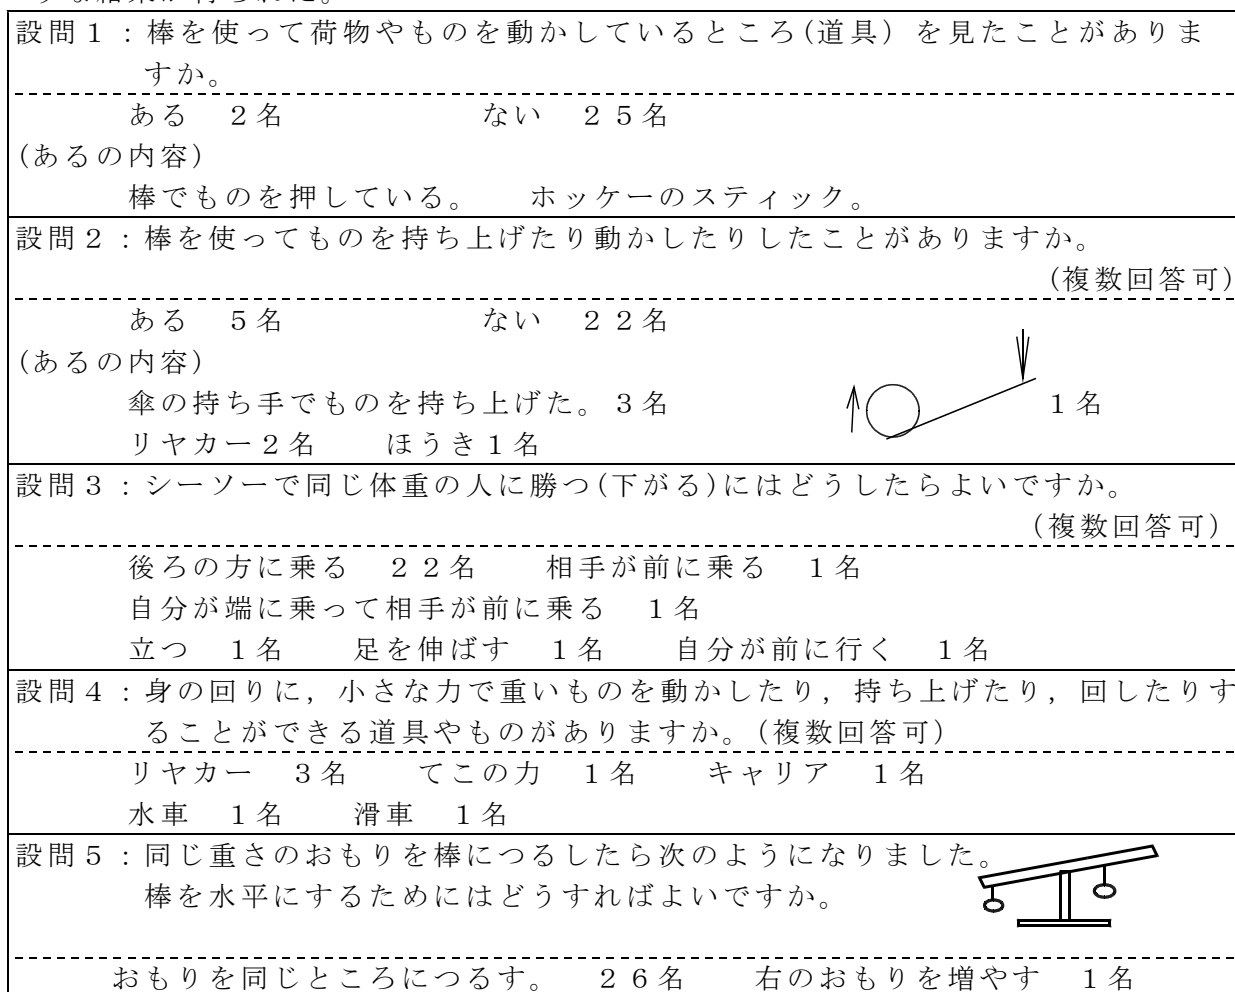 設問１：棒を使って荷物やものを動かしているところ(道具）を見たことがありま
すか。
ある　２名　　　　　ない　２５名
(あるの内容)
棒でものを押している。　ホッケーのスティック。
設問２：棒を使ってものを持ち上げたり動かしたりしたことがありますか。
(複数回答可)
ある　５名　　　　　ない　２２名
(あるの内容)
傘の持ち手でものを持ち上げた。３名　　　　　１名
リヤカー２名　　ほうき１名
設問３：シーソーで同じ体重の人に勝つ(下がる)にはどうしたらよいですか。
(複数回答可)
後ろの方に乗る　２２名　　相手が前に乗る　１名
自分が端に乗って相手が前に乗る　１名
立つ　１名　　足を伸ばす　１名　　自分が前に行く　１名
設問４：身の回りに，小さな力で重いものを動かしたり，持ち上げたり，回したりす
ることができる道具やものがありますか。(複数回答可)
リヤカー　３名　　てこの力　１名　　キャリア　１名
水車　１名　　滑車　１名
設問５：同じ重さのおもりを棒につるしたら次のようになりました。
棒を水平にするためにはどうすればよいですか。
おもりを同じところにつるす。　２６名　　右のおもりを増やす　１名